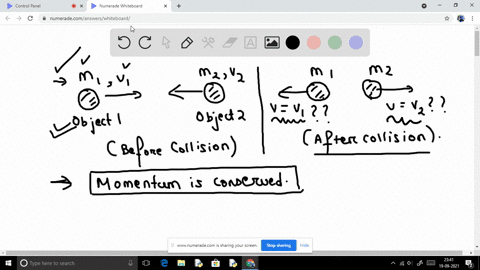 Control Panel
Numerade Whiteboard
numerade.com/answers/whiteboard/
A
m1, v1
m2, v2
m1
m2
Object 1
Object 2
v = v1 ??
v = v2 ??
(Before collision)
(After collision).
→ Momentum is conserved.
www.numerade.com is sharing your screen.
Stop sharing
Hide
Type here to search
23:41
19-09-2021